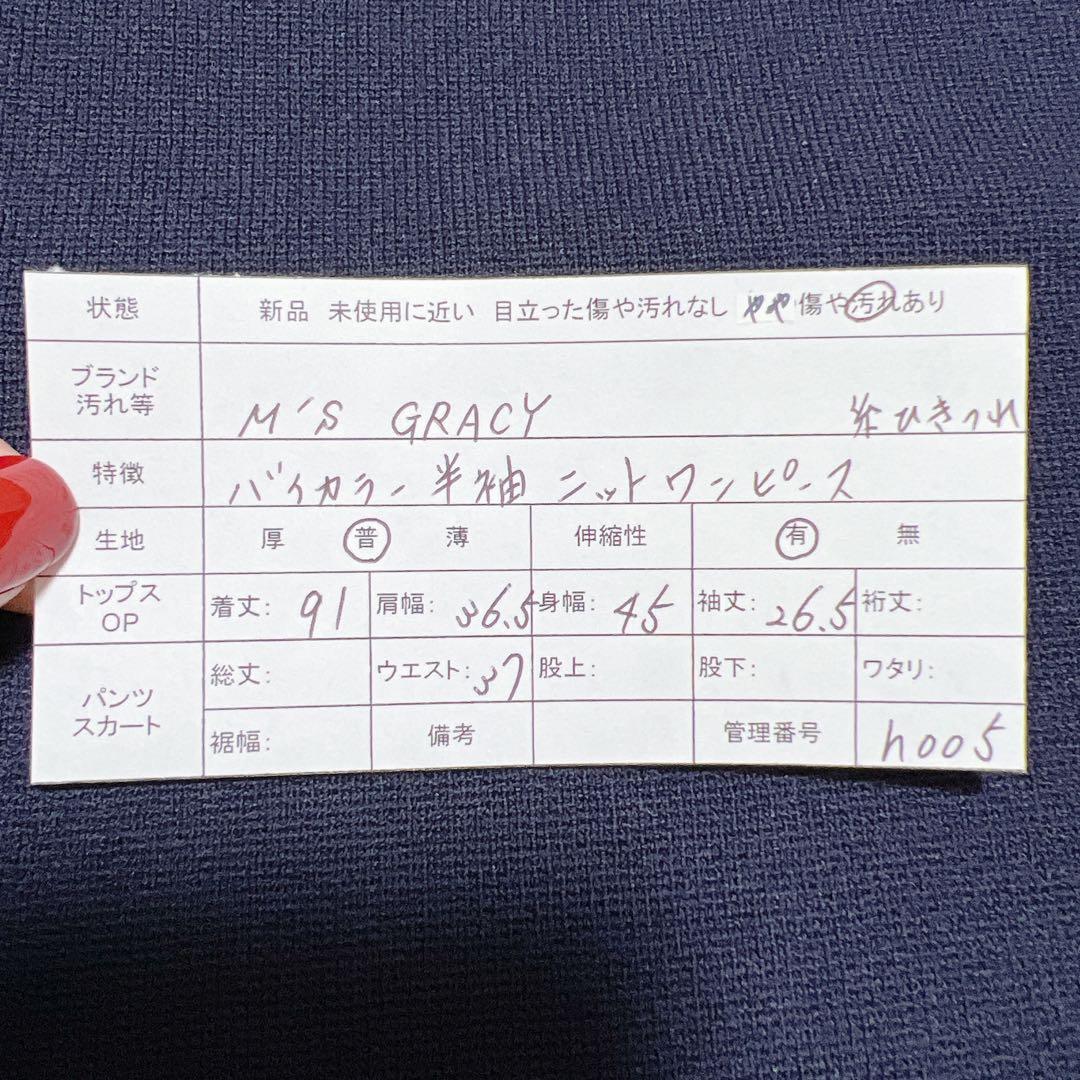 状態 新品 未使用に近い 目立った傷や汚れなし やや 傷や汚れあり
ブランド
汚れ等 M'S GRACY 糸ひきつれ
特徴 バイカラー 半袖 ニットワンピース
生地 厚 普 薄 伸縮性 有 無
トップス
OP 着丈: 91 肩幅: 36.5 身幅: 45 袖丈: 26.5 裄丈:
パンツ
スカート 総丈: ウエスト: 37 股上: 股下: ワタリ:
裾幅: 備考 管理番号 h005